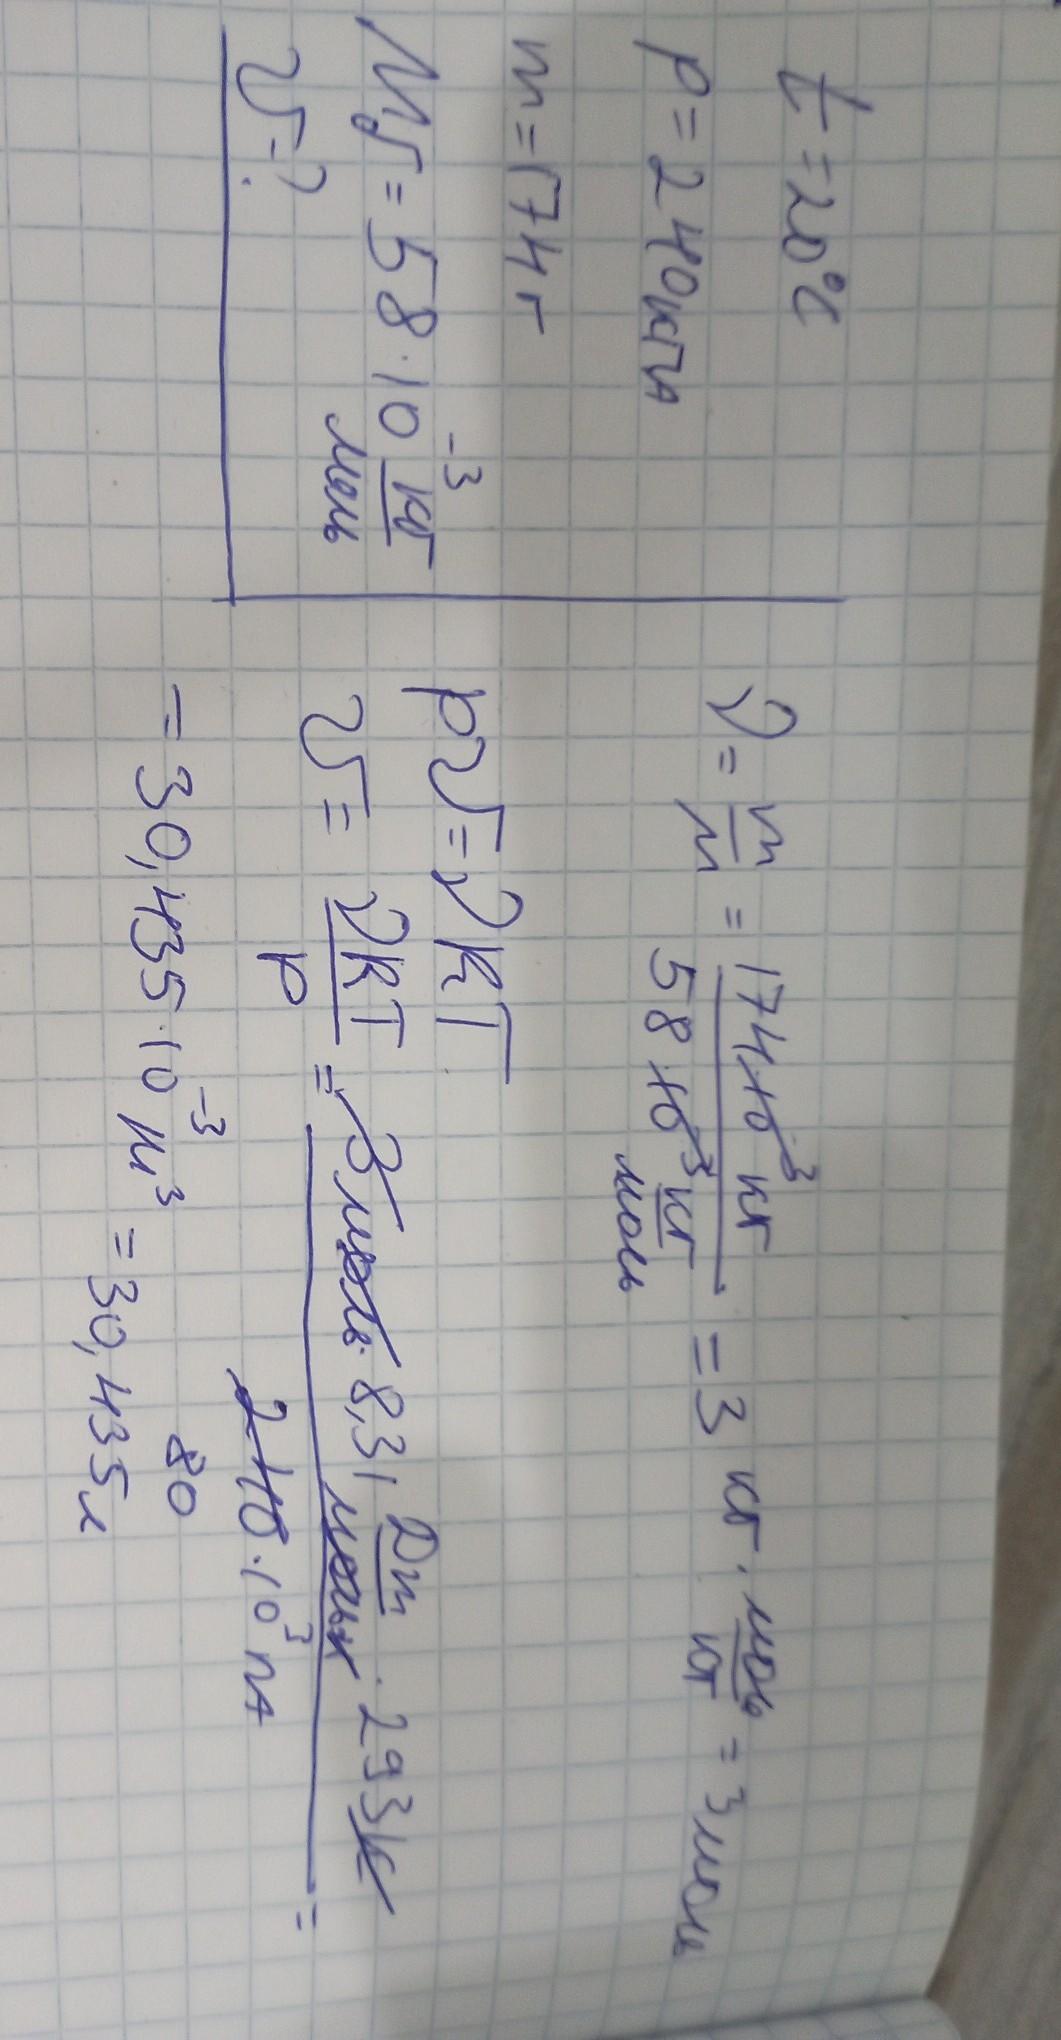 t = 20°C
p = 240 кПа
m = 174 г
M_б = 58 · 10⁻³ кг/моль
V - ?
ν = m/M = 174 · 10⁻³ кг / 58 · 10⁻³ кг/моль = 3 кг · моль/кг = 3 моль
pV = νRT
V = νRT/p = 3 моль · 8,31 Дж/моль·К · 293 К / 240 · 10³ Па =
80
= 30,435 · 10⁻³ м³ = 30,435 л